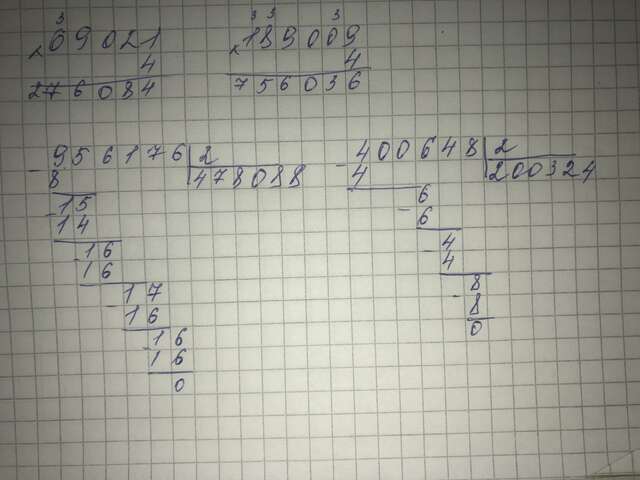 3
×69021
4
276084
3 3 3
×189009
4
756036
-956176|2
8 478088
-15
14
-16
16
-17
16
-16
16
0
-400648|2
4 200324
-6
6
-4
4
-8
8
0